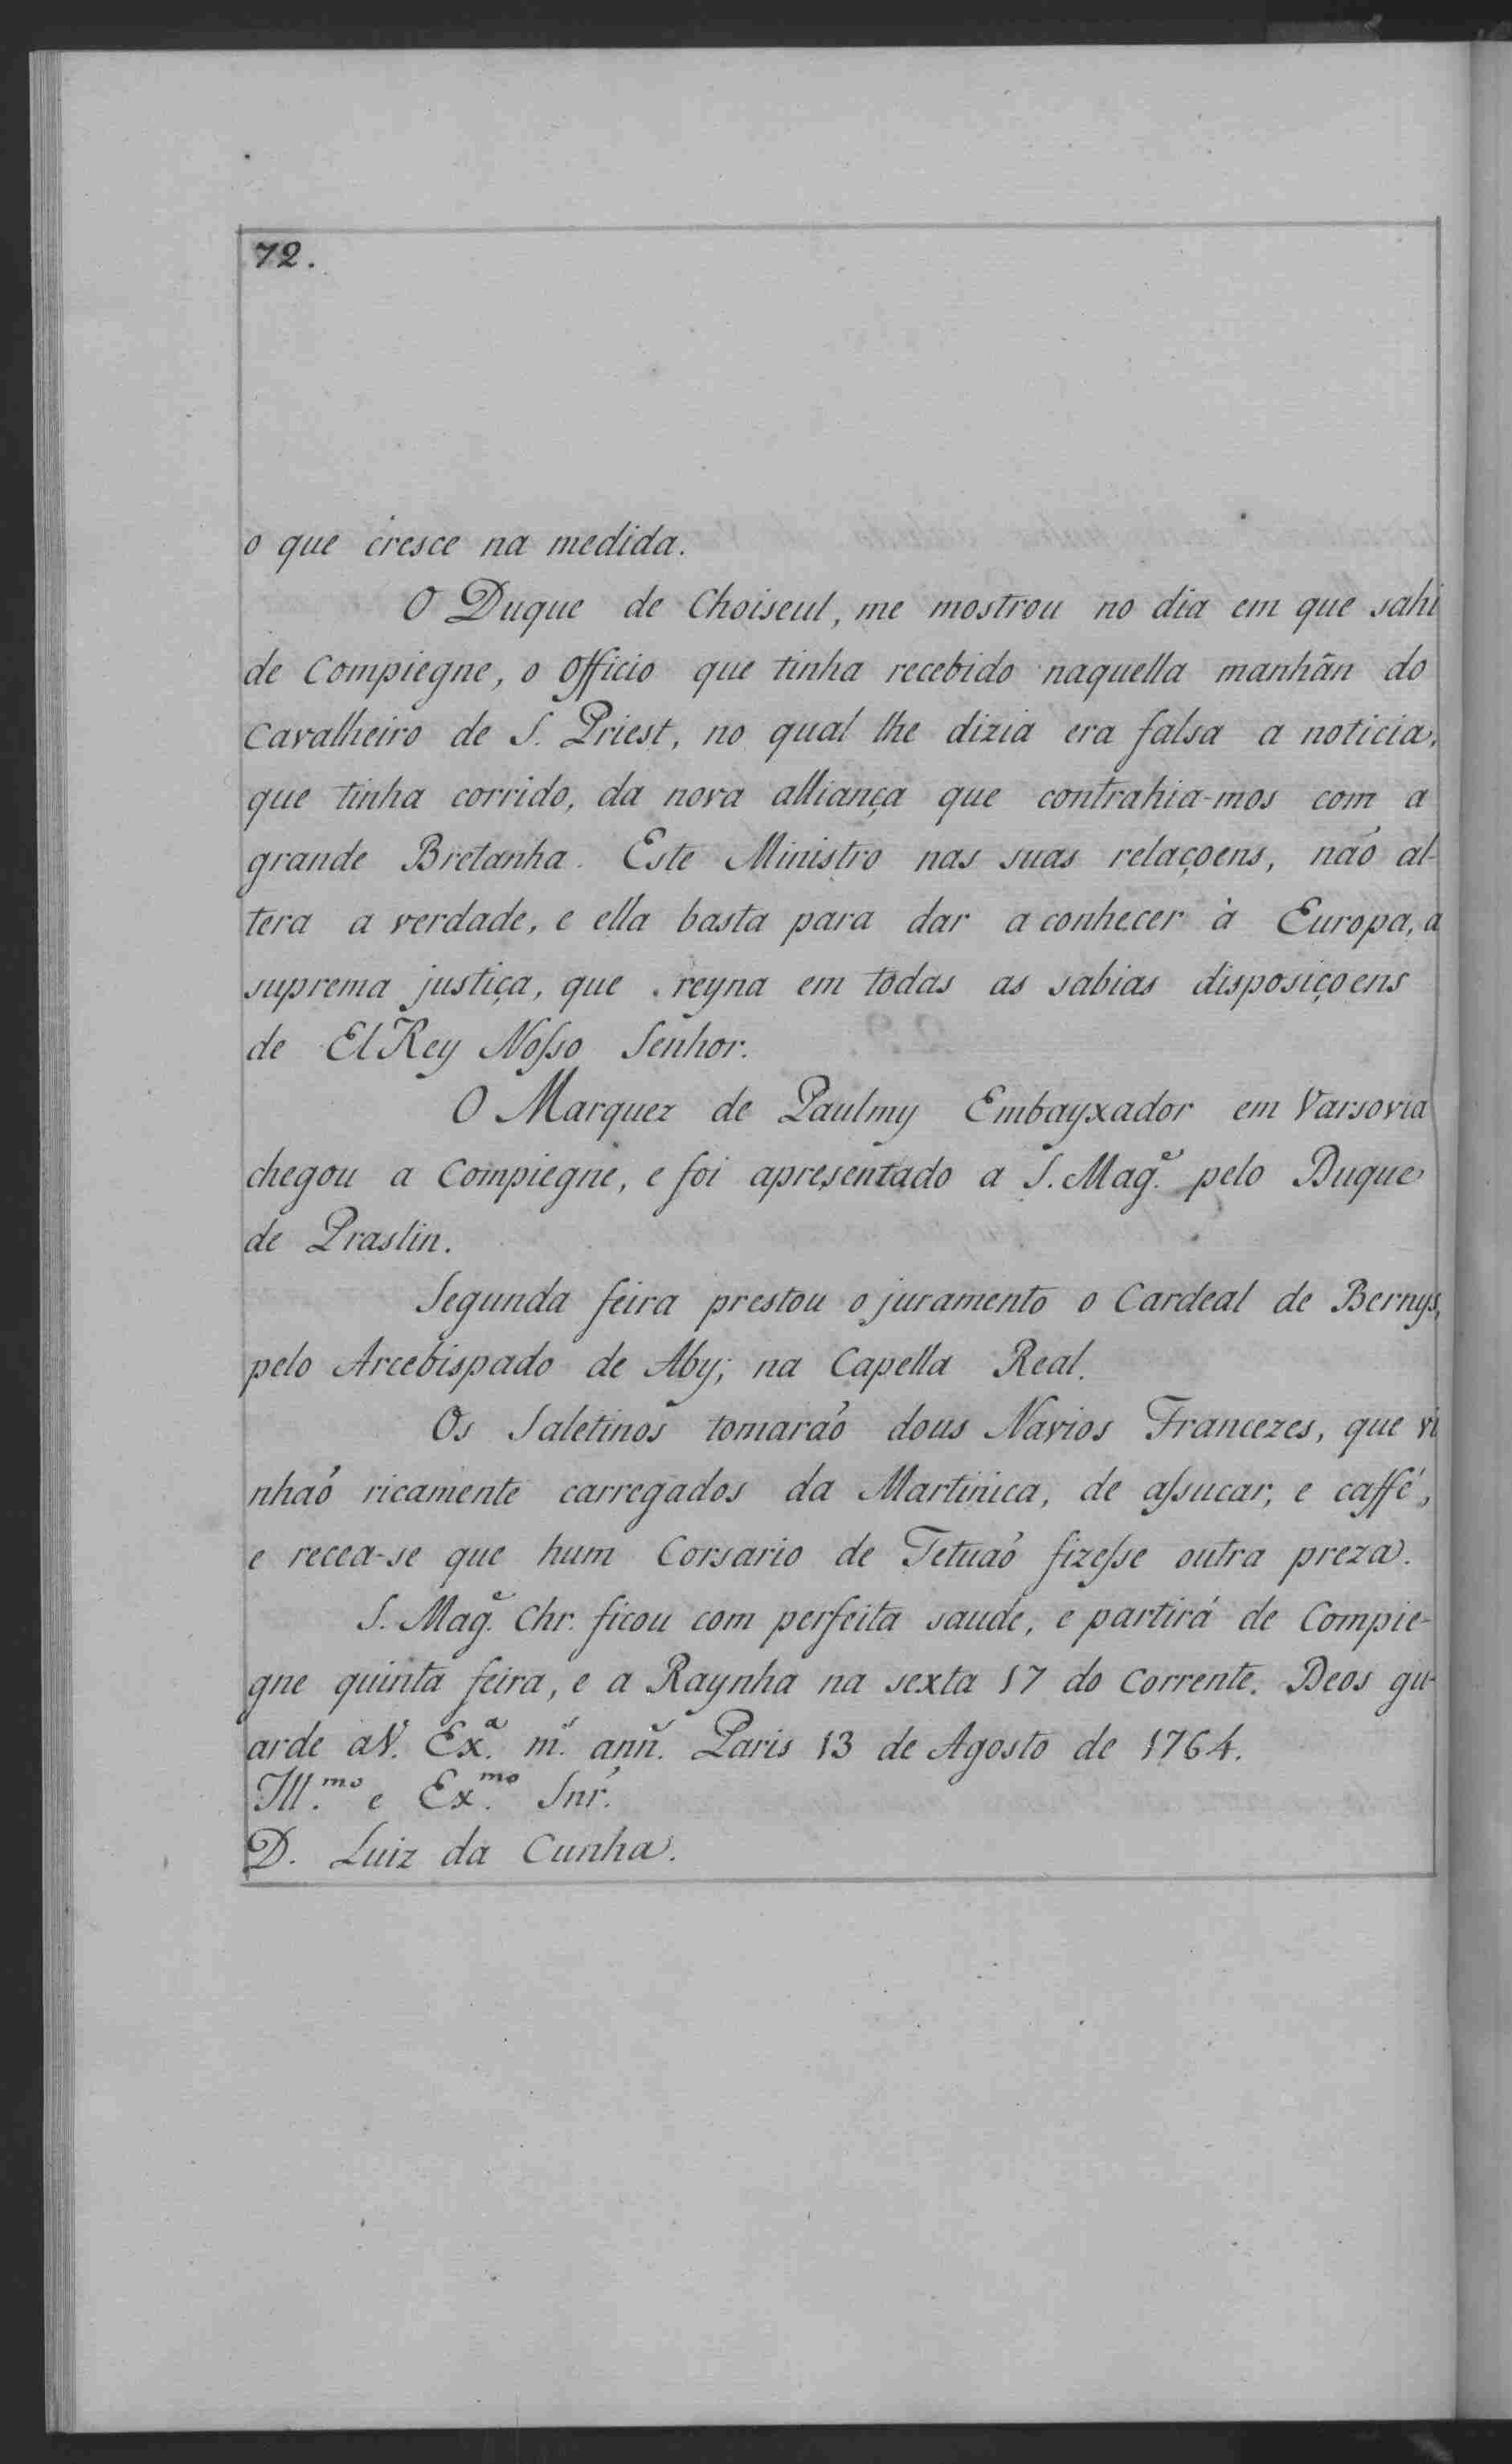 72.
o que cresce na medida.
O Duque de Choiseul, me mostrou no dia em que sahi
de Compiegne, o officio que tinha recebido naquella manhãn do
Cavalheiro de S. Priest, no qual lhe dizia era falsa a noticia,
que tinha corrido, da nova alliança que contrahia-mos com a
grande Bretanha. Este Ministro nas suas relaçoens, não al-
tera a verdade, e ella basta para dar a conhecer à Europa, a
suprema justiça, que reyna em todas as sabias disposiçoens
de El Rey Nosso Senhor.
O Marquez de Paulmy Embayxador em Varsovia
chegou a Compiegne, e foi apresentado a S. Mag.e pelo Duque
de Praslin.
Segunda feira prestou o juramento o Cardeal de Bernys,
pelo Arcebispado de Aby; na Capella Real.
Os Saletinos tomaraõ dous Navios Francezes, que vi
nhaõ ricamente carregados da Martinica, de assucar, e caffé,
e recea-se que hum Corsario de Tetuaõ fizesse outra preza.
S. Mag.e Chr. ficou com perfeita saude, e partirá de Compie-
gne quinta feira, e a Raynha na sexta 17 do Corrente. Deos gu-
arde a V. Ex.a m.s ann.s Paris 13 de Agosto de 1764.
Ill.mo e Ex.mo Snr.
D. Luiz da Cunha.